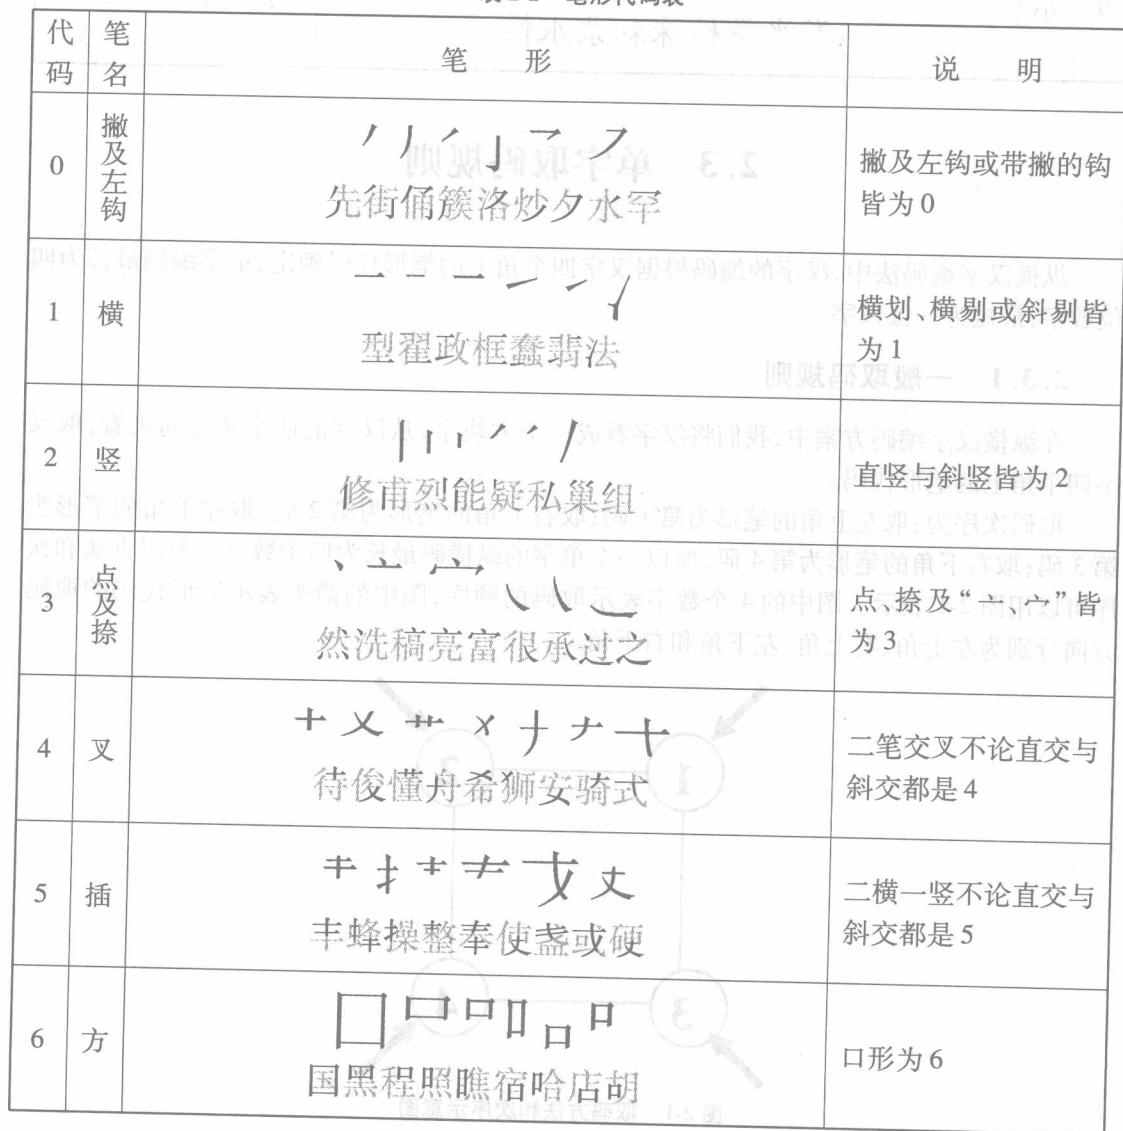 代码 笔名 笔 形 说 明
0 撇及左钩 先街俑簇洛炒夕水罕 撇及左钩或带撇的钩
皆为0
1 横 型翟政框蠢翡法 横划、横剔或斜剔皆
为1
2 竖 修甫烈能疑私巢组 直竖与斜竖皆为2
3 点及捺 然洗稿亮富很承过之 点、捺及“亠、宀”皆
为3
4 叉 待俊懂舟希狮安骑式 二笔交叉不论直交与
斜交都是4
5 插 丰蜂操整奉使盏或硬 二横一竖不论直交与
斜交都是5
6 方 国黑程照瞧宿哈店胡 口形为6